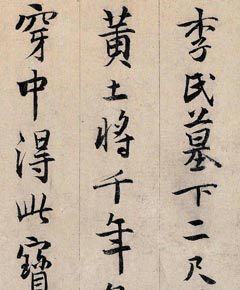 李民墓下二尺
黄土將千年
穿中得此寶